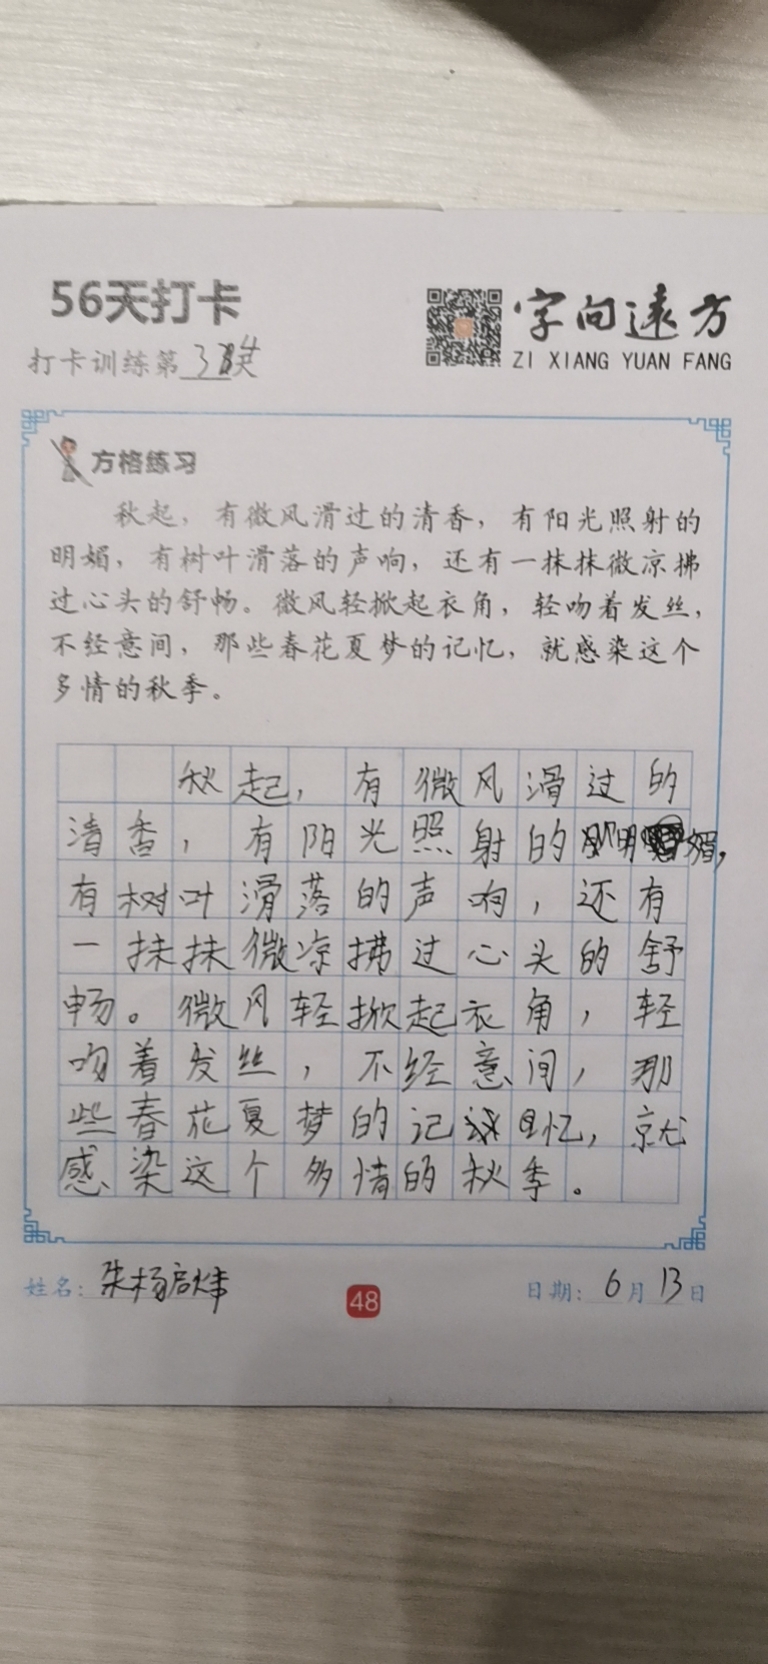 56天打卡
字向远方
打卡训练第34天
ZI XIANG YUAN FANG
方格练习
秋起，有微风滑过的清香，有阳光照射的
明媚，有树叶滑落的声响，还有一抹抹微凉拂
过心头的舒畅。微风轻掀起衣角，轻吻着发丝，
不经意间，那些春花夏梦的记忆，就感染这个
多情的秋季。
秋起，有微风滑过的
清香，有阳光照射的明媚，
有树叶滑落的声响，还有
一抹抹微凉拂过心头的舒
畅。微风轻掀起衣角，轻
吻着发丝，不经意间，那
些春花夏梦的记忆，就
感染这个多情的秋季。
姓名：朱杨启炜
48
日期：6月13日